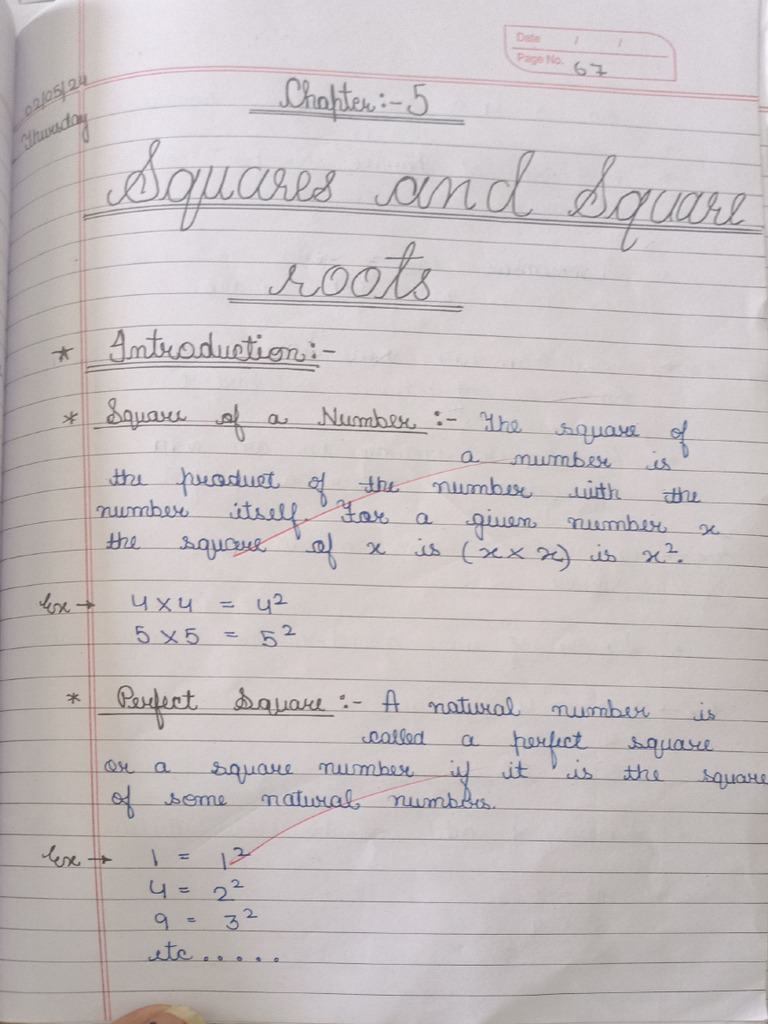 Date / /
Page No. 67
02/05/24
Thursday
Chapter:-5
Squares and Square
roots
* Introduction:-
* Square of a Number :- The square of
a number is
the product of the number with the
number itself. For a given number x
the square of x is (x × x) is x².
Ex → 4 × 4 = 4²
5 × 5 = 5²
* Perfect Square :- A natural number is
called a perfect square
or a square number if it is the square
of some natural numbers.
Ex → 1 = 1²
4 = 2²
9 = 3²
etc.....